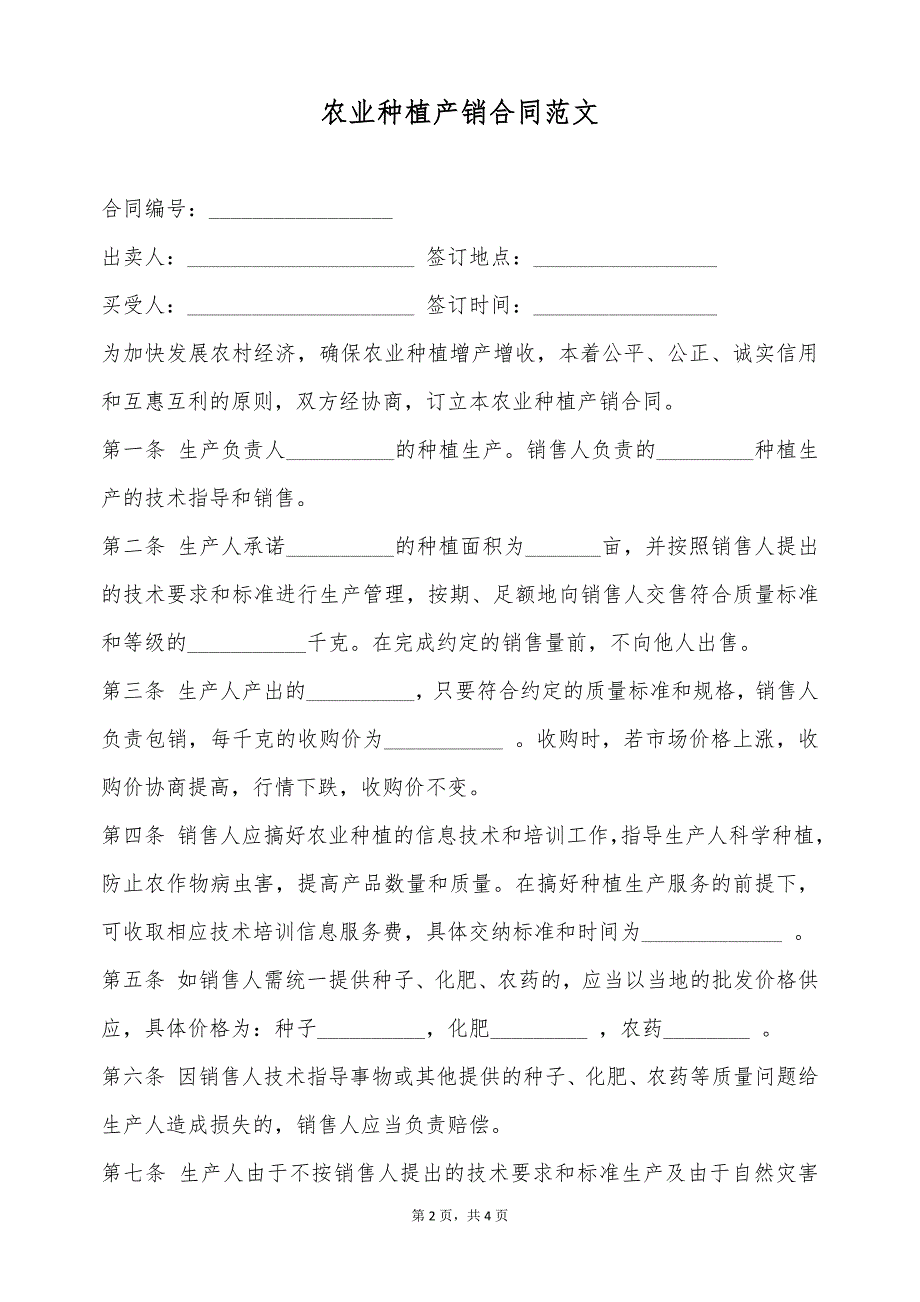 农业种植产销合同范文
合同编号：_________________
出卖人：_____________________ 签订地点：_________________
买受人：_____________________ 签订时间：_________________
为加快发展农村经济，确保农业种植增产增收，本着公平、公正、诚实信用
和互惠互利的原则，双方经协商，订立本农业种植产销合同。
第一条 生产负责人__________的种植生产。销售人负责的_________种植生
产的技术指导和销售。
第二条 生产人承诺__________的种植面积为_______亩，并按照销售人提出
的技术要求和标准进行生产管理，按期、足额地向销售人交售符合质量标准
和等级的___________千克。在完成约定的销售量前，不向他人出售。
第三条 生产人产出的__________，只要符合约定的质量标准和规格，销售人
负责包销，每千克的收购价为___________ 。收购时，若市场价格上涨，收
购价协商提高，行情下跌，收购价不变。
第四条 销售人应搞好农业种植的信息技术和培训工作，指导生产人科学种植，
防止农作物病虫害，提高产品数量和质量。在搞好种植生产服务的前提下，
可收取相应技术培训信息服务费，具体交纳标准和时间为_____________ 。
第五条 如销售人需统一提供种子、化肥、农药的，应当以当地的批发价格供
应，具体价格为：种子__________，化肥_________ ，农药________ 。
第六条 因销售人技术指导事物或其他提供的种子、化肥、农药等质量问题给
生产人造成损失的，销售人应当负责赔偿。
第七条 生产人由于不按销售人提出的技术要求和标准生产及由于自然灾害
第 2 页，共 4 页